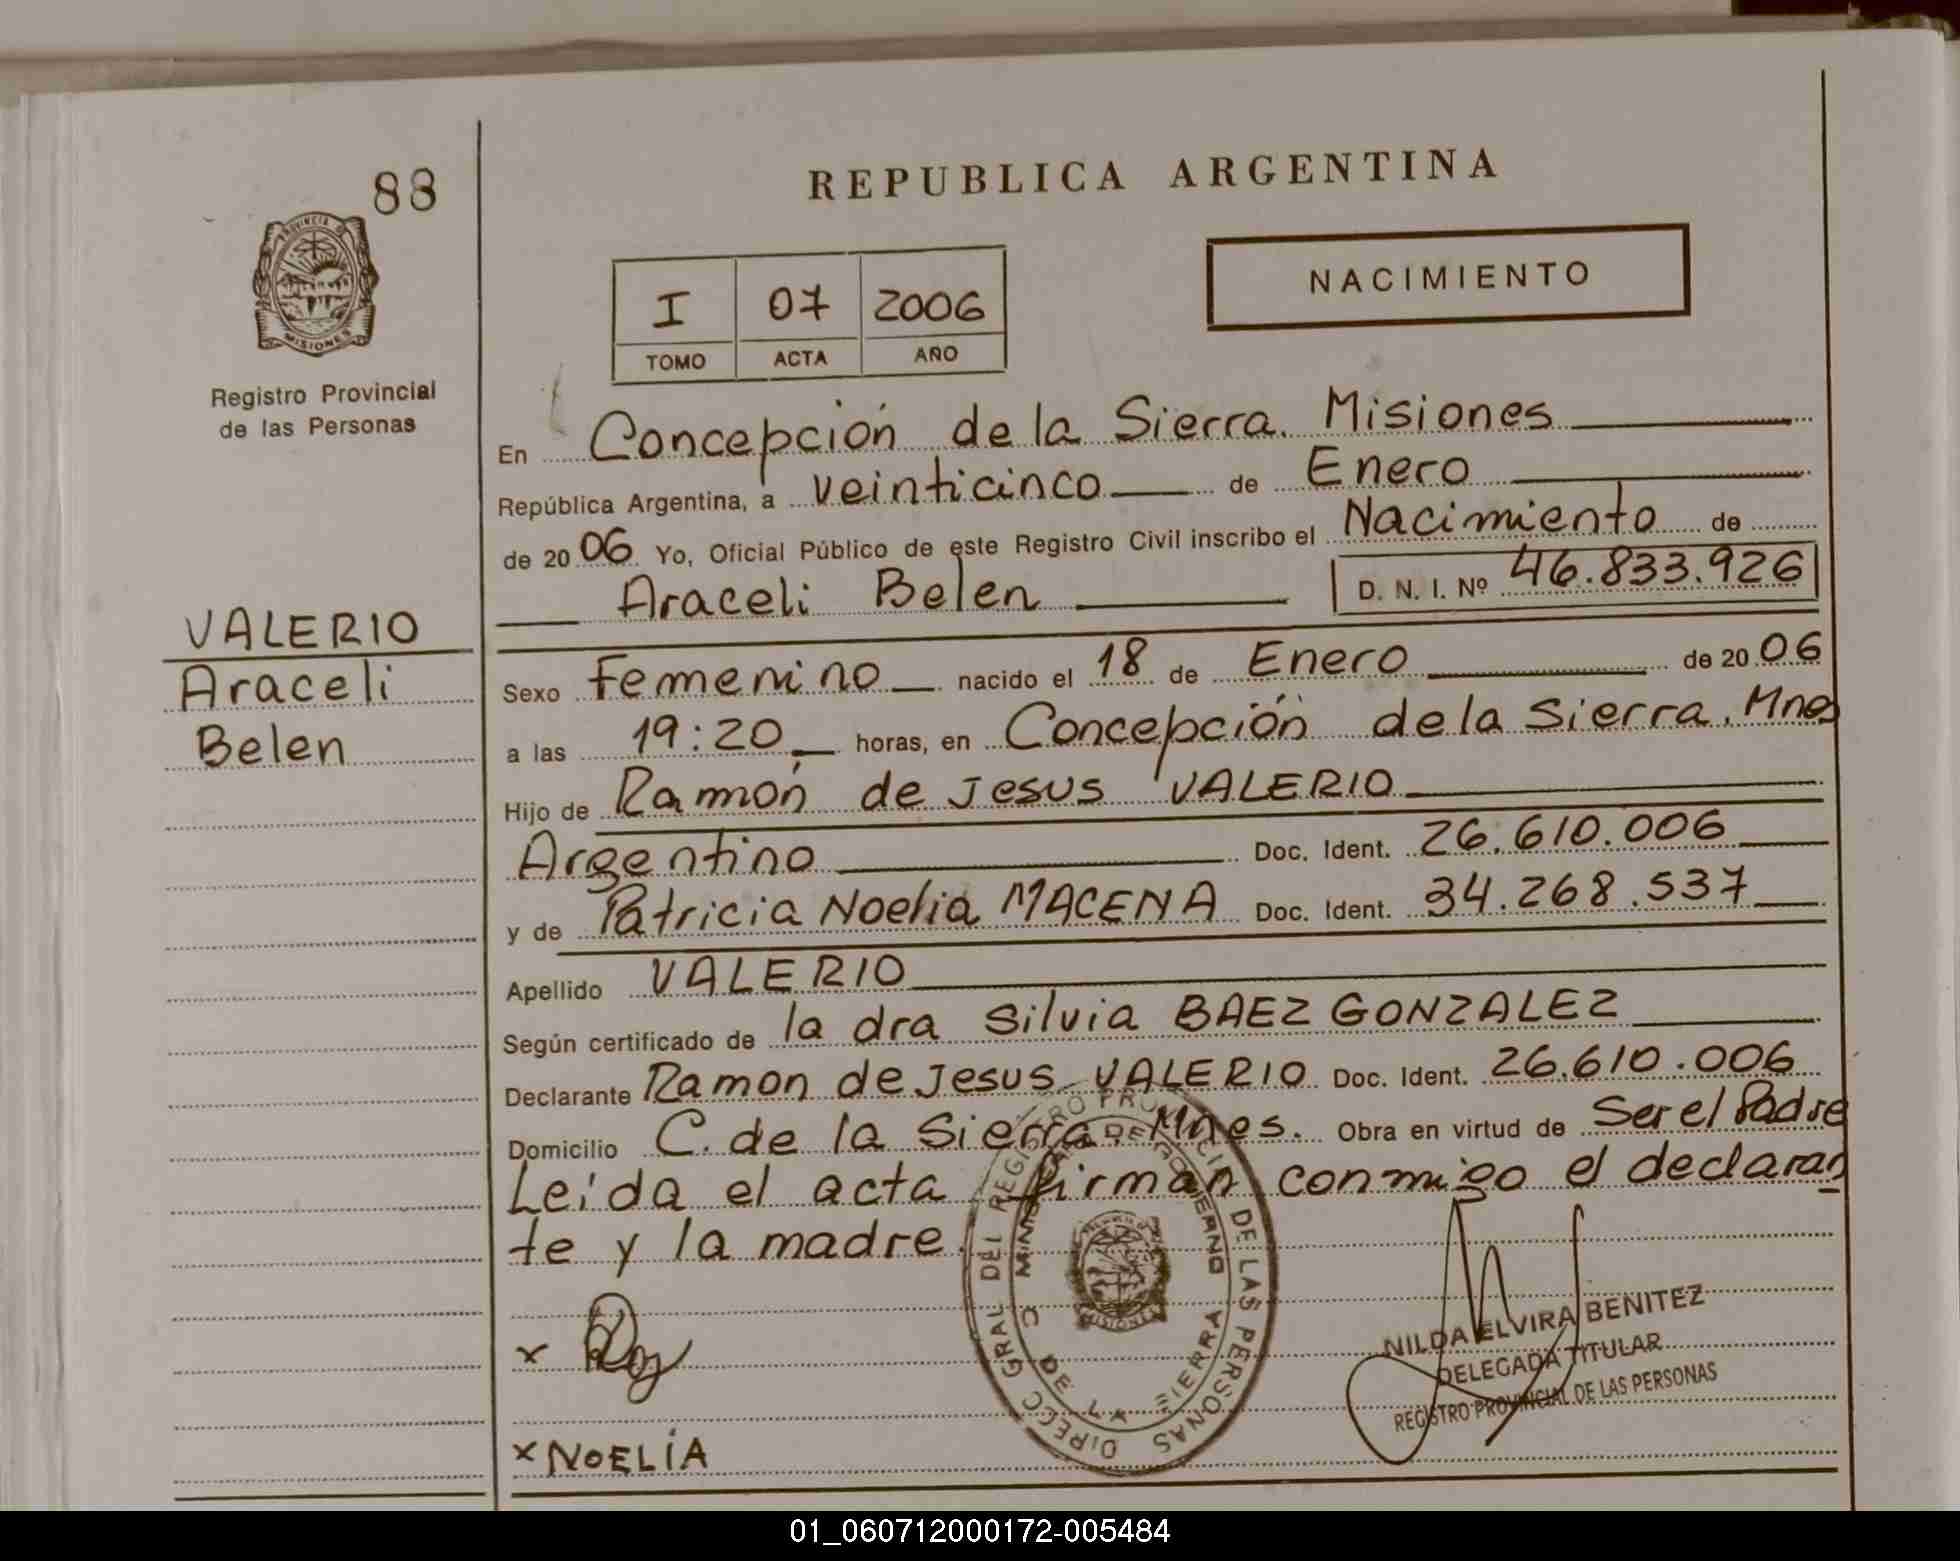 88
REPUBLICA ARGENTINA
I 07 2006
TOMO ACTA AÑO
NACIMIENTO
PROVINCIA D
MISIONES
Registro Provincial
de las Personas
VALERIO
Araceli
Belen
En Concepción de la Sierra. Misiones
República Argentina, a veinticinco de Enero
de 2006 Yo, Oficial Público de este Registro Civil inscribo el Nacimiento de
Araceli Belen D. N. I. Nº 46.833.926
Sexo Femenino nacido el 18 de Enero de 2006
a las 19:20 horas, en Concepción de la Sierra. Mnes
Hijo de Ramón de Jesus VALERIO
Argentino Doc. Ident. 26.610.006
y de Patricia Noelia MACENA Doc. Ident. 34.268.537
Apellido VALERIO
Según certificado de la dra Silvia BAEZ GONZALEZ
Declarante Ramon de Jesus VALERIO Doc. Ident. 26.610.006
Domicilio C. de la Sierra. Mnes. Obra en virtud de Ser el Padre
Leida el acta firman conmigo el declaran
te y la madre.
DIRECC GRAL DEL REGISTRO PROVINCIAL DE LAS PERSONAS
C DE LA SIERRA
MISIONES
NILDA ELVIRA BENITEZ
DELEGADA TITULAR
REGISTRO PROVINCIAL DE LAS PERSONAS
x
x NOELIA
01_060712000172-005484